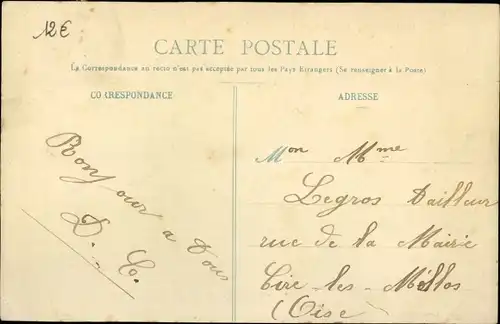 12€
CARTE POSTALE
La Correspondance au recto n'est pas acceptée par tous les Pays Etrangers (Se renseigner à la Poste)
CORRESPONDANCE
ADRESSE
Bonjour a Tous
D. C.
Mon Mme
Legros Tailleur
rue de la Mairie
Cire-les-Mellos
(Oise